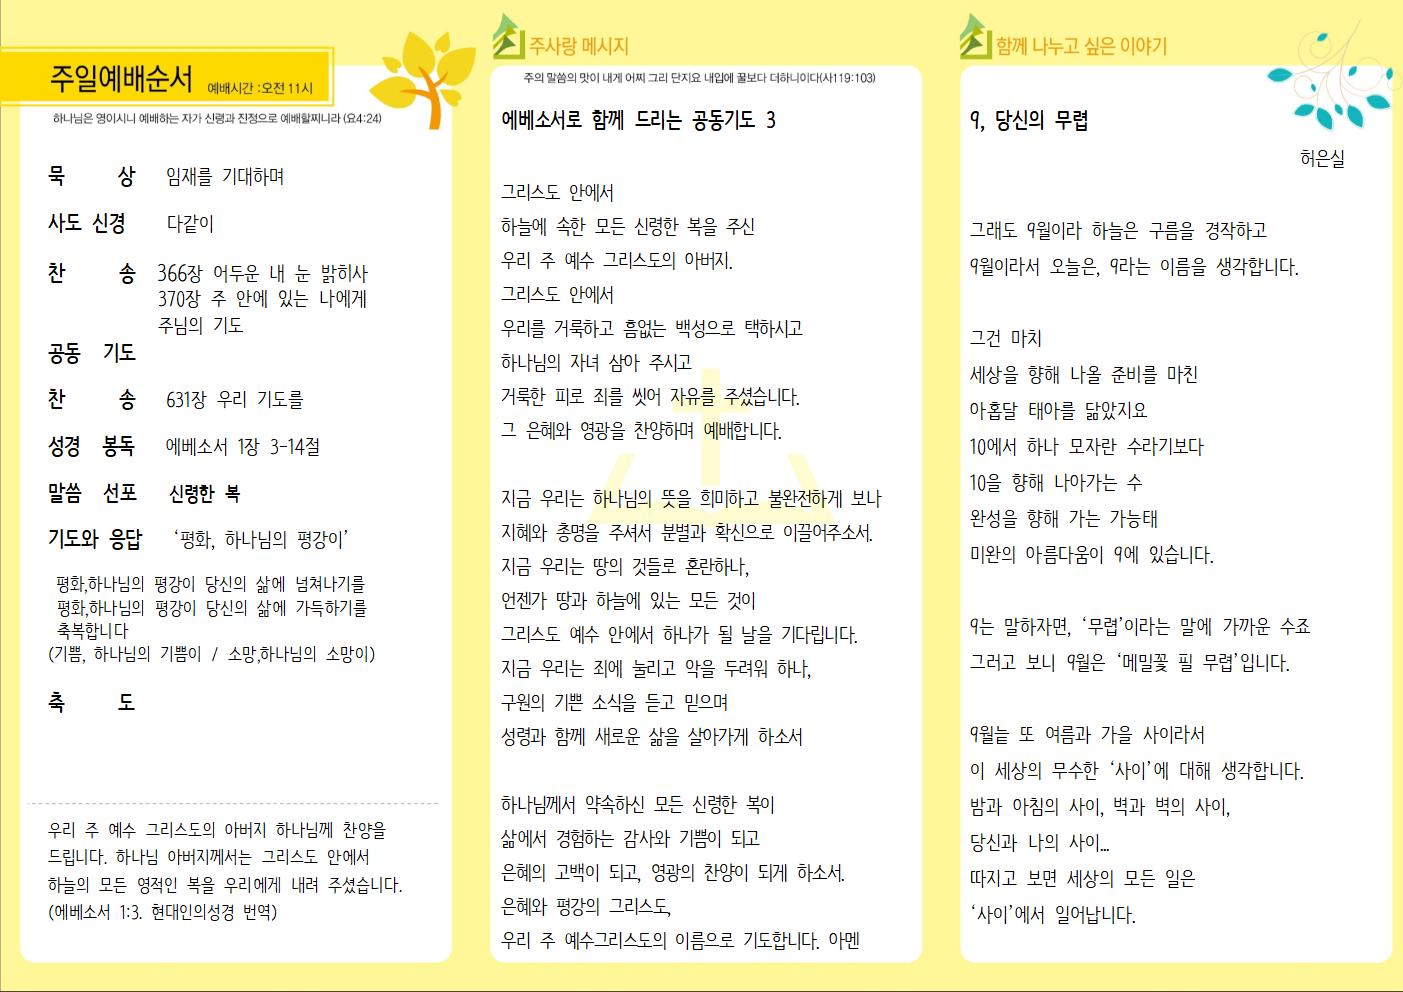 주일예배순서 예배시간 :오전 11시
하나님은 영이시니 예배하는 자가 신령과 진정으로 예배할찌니라 (요4:24)
묵 상 임재를 기대하며
사도 신경 다같이
찬 송 366장 어두운 내 눈 밝히사
370장 주 안에 있는 나에게
주님의 기도
공동 기도
찬 송 631장 우리 기도를
성경 봉독 에베소서 1장 3-14절
말씀 선포 신령한 복
기도와 응답 ‘평화, 하나님의 평강이’
평화,하나님의 평강이 당신의 삶에 넘쳐나기를
평화,하나님의 평강이 당신의 삶에 가득하기를
축복합니다
(기쁨, 하나님의 기쁨이 / 소망,하나님의 소망이)
축 도
우리 주 예수 그리스도의 아버지 하나님께 찬양을
드립니다. 하나님 아버지께서는 그리스도 안에서
하늘의 모든 영적인 복을 우리에게 내려 주셨습니다.
(에베소서 1:3. 현대인의성경 번역)
주사랑 메시지
주의 말씀의 맛이 내게 어찌 그리 단지요 내입에 꿀보다 더하니이다(사119:103)
에베소서로 함께 드리는 공동기도 3
그리스도 안에서
하늘에 속한 모든 신령한 복을 주신
우리 주 예수 그리스도의 아버지.
그리스도 안에서
우리를 거룩하고 흠없는 백성으로 택하시고
하나님의 자녀 삼아 주시고
거룩한 피로 죄를 씻어 자유를 주셨습니다.
그 은혜와 영광을 찬양하며 예배합니다.
지금 우리는 하나님의 뜻을 희미하고 불완전하게 보나
지혜와 총명을 주셔서 분별과 확신으로 이끌어주소서.
지금 우리는 땅의 것들로 혼란하나,
언젠가 땅과 하늘에 있는 모든 것이
그리스도 예수 안에서 하나가 될 날을 기다립니다.
지금 우리는 죄에 눌리고 악을 두려워 하나,
구원의 기쁜 소식을 듣고 믿으며
성령과 함께 새로운 삶을 살아가게 하소서
하나님께서 약속하신 모든 신령한 복이
삶에서 경험하는 감사와 기쁨이 되고
은혜의 고백이 되고, 영광의 찬양이 되게 하소서.
은혜와 평강의 그리스도,
우리 주 예수그리스도의 이름으로 기도합니다. 아멘
함께 나누고 싶은 이야기
9, 당신의 무렵
허은실
그래도 9월이라 하늘은 구름을 경작하고
9월이라서 오늘은, 9라는 이름을 생각합니다.
그건 마치
세상을 향해 나올 준비를 마친
아홉달 태아를 닮았지요
10에서 하나 모자란 수라기보다
10을 향해 나아가는 수
완성을 향해 가는 가능태
미완의 아름다움이 9에 있습니다.
9는 말하자면, ‘무렵’이라는 말에 가까운 수죠
그러고 보니 9월은 ‘메밀꽃 필 무렵’입니다.
9월늘 또 여름과 가을 사이라서
이 세상의 무수한 ‘사이’에 대해 생각합니다.
밤과 아침의 사이, 벽과 벽의 사이,
당신과 나의 사이...
따지고 보면 세상의 모든 일은
‘사이’에서 일어납니다.